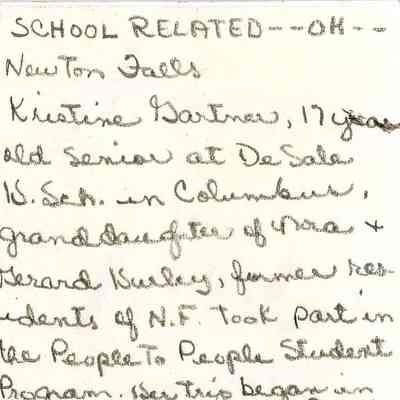 SCHOOL RELATED---OH--
Newton Falls
Kristine Gartner, 17 year
old Senior at De Sales
H. Sch. in Columbus,
granddaughter of Nora +
Gerard Hurley, former res-
idents of N.F. Took part in
the People To People Student
Program. Her trip began in